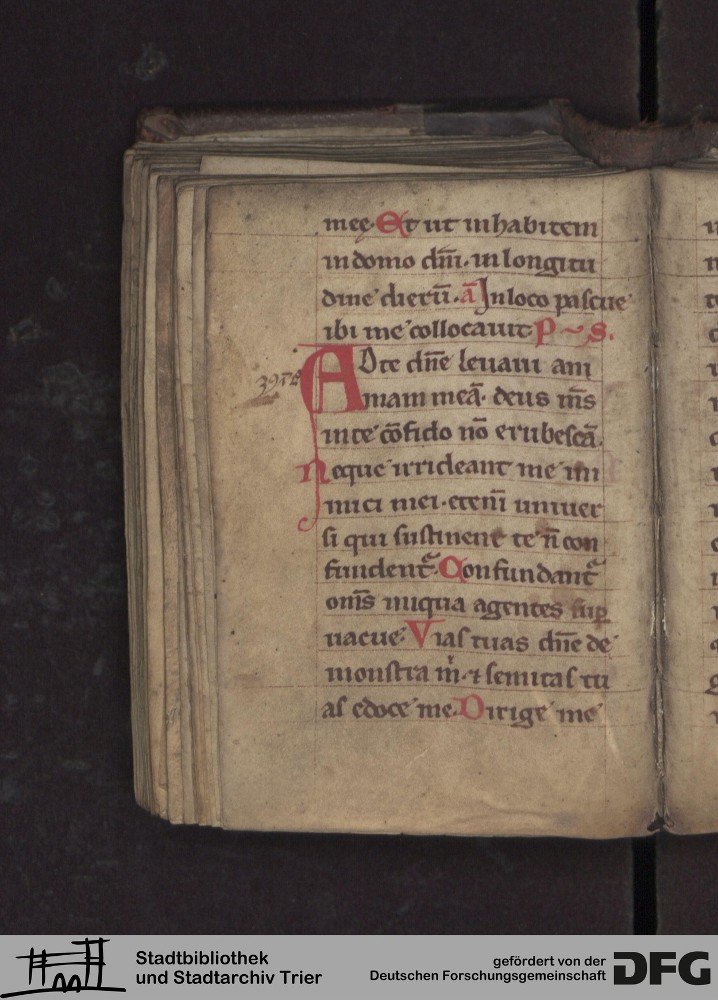 meę. Et ut inhabitem
in domo dn̄i. in longitu
dine dierū. ā In loco pascue
ibi me collocauit P ~ S.
ADte dn̄e leuaui ani
mam meā. deus m̄s
in te cōfido nō erubescā.
Neque irrideant me ini
mici mei. eteni uniuer
si qui sustinent te n̄ con
fundent᷑. Confundant᷑
om̄s iniqua agentes sup̄
uacue. Vias tuas dn̄e de
monstra m̄. ⁊ semitas tu
as edoce me. Dirige me
Stadtbibliothek
und Stadtarchiv Trier
gefördert von der
Deutschen Forschungsgemeinschaft
DFG